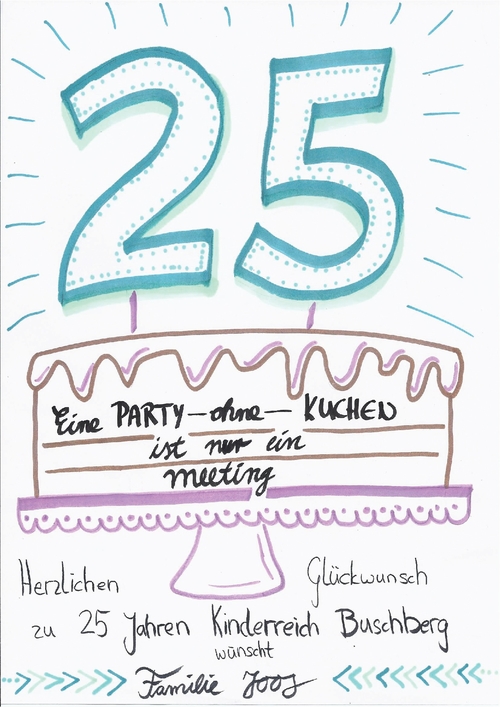 25
Eine PARTY - ohne - KUCHEN
ist nur ein
meeting
Herzlichen Glückwunsch
zu 25 Jahren Kinderreich Buschberg
wünscht
Familie Joos